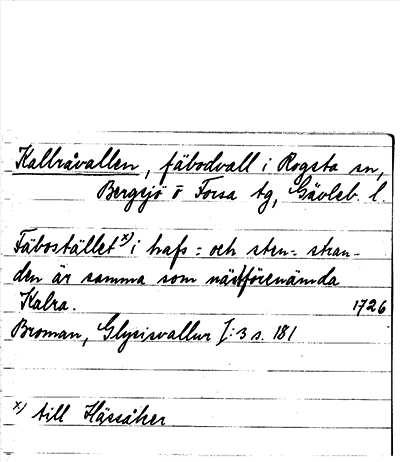 Kallråvallen, fäbodvall i Rogsta sn,
Bergsjö o Forsa tg, Gävleb. l.
Fäbostället x) i hafs= och sten=stran-
den är samma som näst förenämda
Kalra. 1726
Broman, Glysisvallur I:3 s. 181
x) till Hässåker